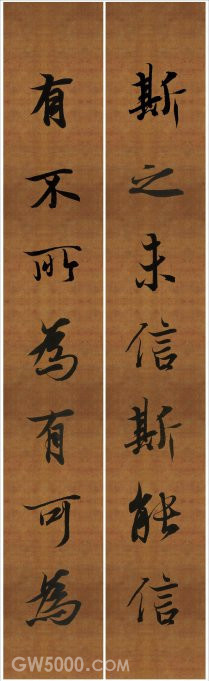 斯之未信斯能信
有不所為有可為
GW5000.com